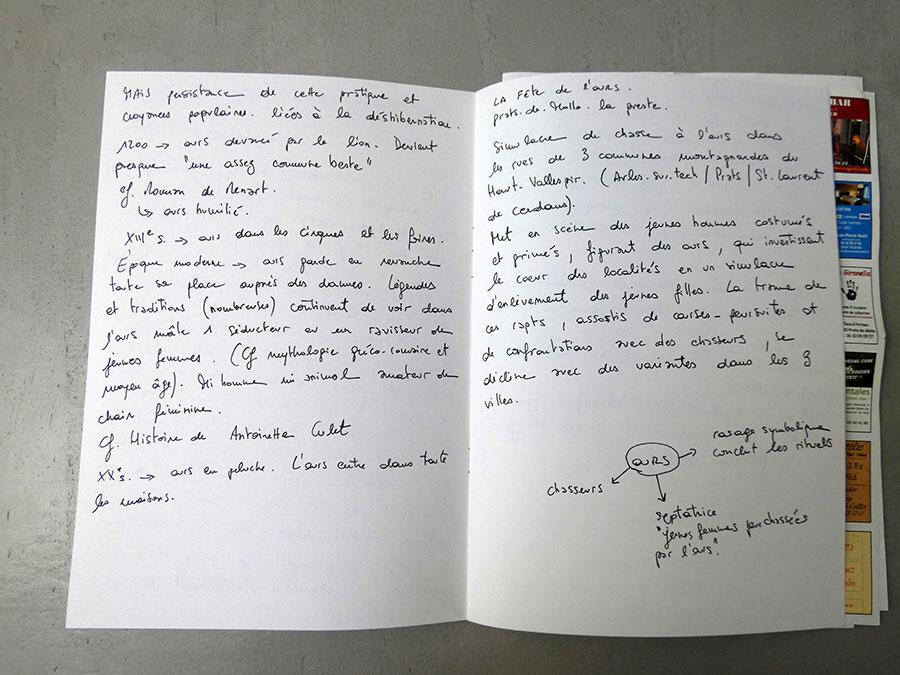 MAIS persistance de cette pratique et
croyances populaires. liées à la déshibernation.
1200 → ours devancé par le lion. Devient
presque "une assez commune beste"
cf. Roman de Renart.
↳ ours humilié.
XIIIe s. → ours dans les cirques et les foires.
Époque moderne → ours garde en revanche
toute sa place auprès des dames. Légendes
et traditions (nombreuses) continuent de voir dans
l'ours mâle 1 séducteur ou un ravisseur de
jeunes femmes. (Cf mythologie gréco-romaine et
moyen âge). Mi homme mi animal amateur de
chair féminine.
Cf. Histoire de Antoinette Culet
XXe s. → ours en peluche. L'ours entre dans toute
les maisons.
LA FÊTE de l'ours.
prats. de. Mollo. la preste.
Simulacre de chasse à l'ours dans
les rues de 3 communes montagnardes du
Haut-Vallespir. (Arles. sur. tech / Prats / St. Laurent
de cerdans).
Met en scène des jeunes hommes costumés
et grimés, figurant des ours, qui investissent
le coeur des localités en un simulacre
d'enlèvement des jeunes filles. La trame de
ces rapts, assortis de courses-poursuites et
de confrontations avec des chasseurs, se
décline avec des variantes dans les 3
villes.
OURS
rasage symbolique
conclut les rituels
chasseurs
"jeunes femmes pourchassées
par l'ours"
BAR
Gironella